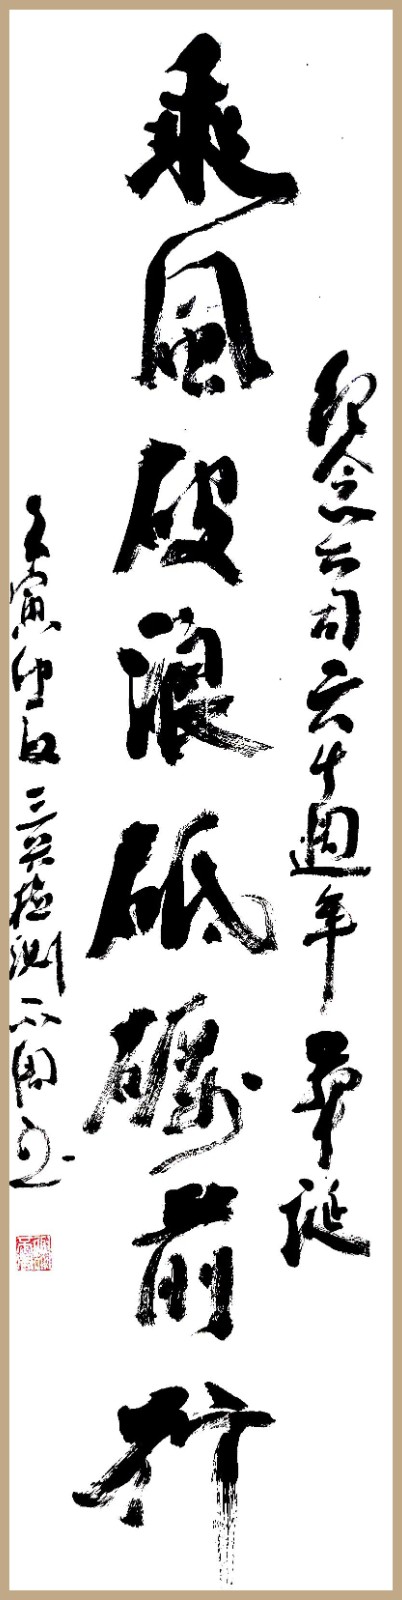 紀念公司六十週年華誕
乘風破浪砥礪前行
壬寅仲夏三英检测